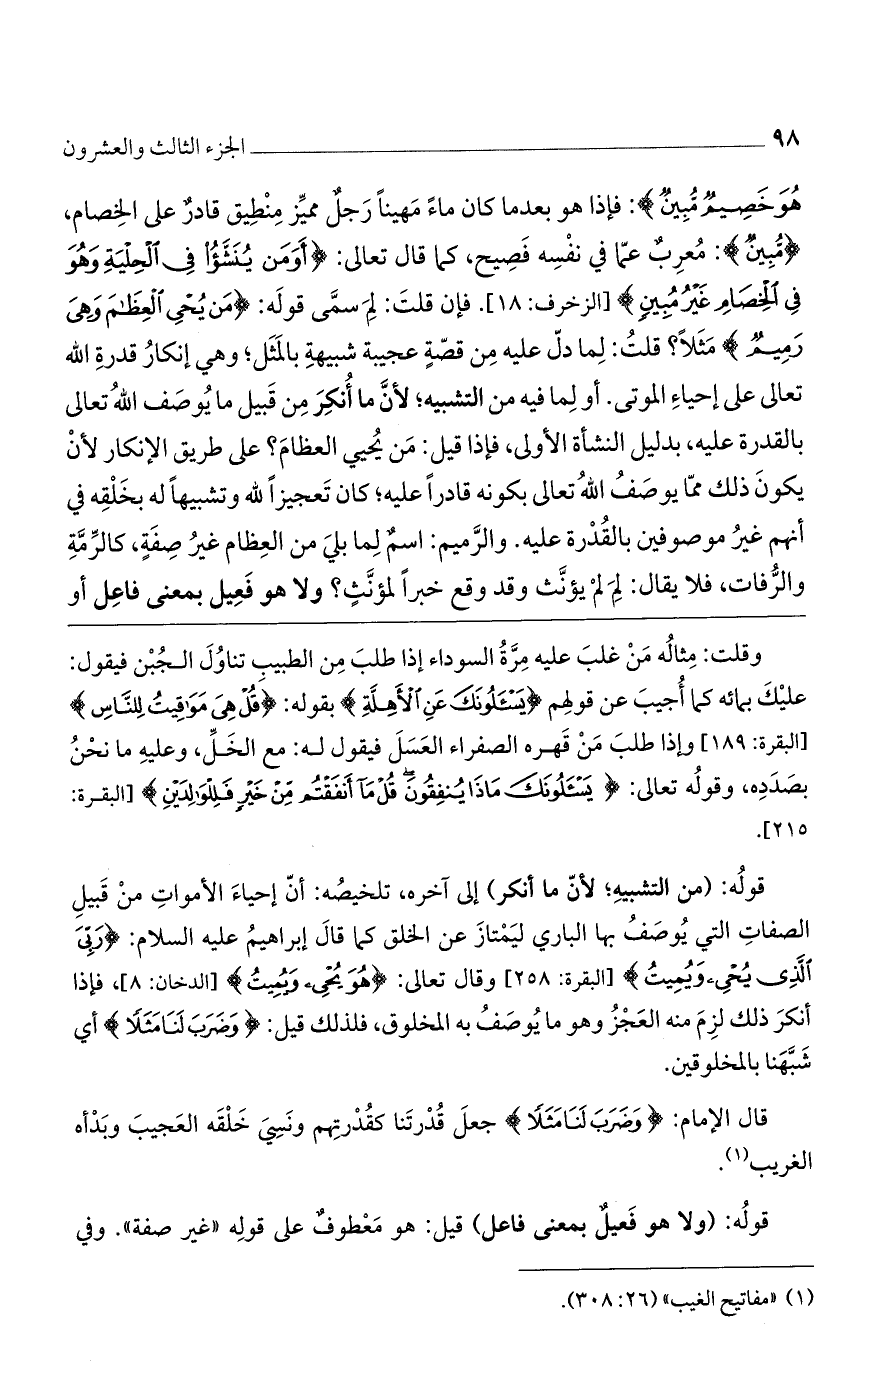 ٩٨ ـــــــــ الجزء الثالث والعشرون
هُوَ خَصِيمٌ مُّبِينٌ ﴾: فإذا هو بعدما كان ماءً مَهيناً رَجلٌ مميِّز مِنْطِيق قادرٌ على الخِصام،
﴿مُّبِينٌ ﴾: مُعرِبٌ عمّا في نفْسِه فَصِيح، كما قال تعالى: ﴿أَوَمَن يُنَشَّؤُا فِى الْحِلْيَةِ وَهُوَ
فِى الْخِصَامِ غَيْرُ مُبِينٍ ﴾ [الزخرف: ١٨]. فإن قلتَ: لِمَ سمَّى قولَه: ﴿مَن يُحْيِ الْعِظَٰمَ وَهِىَ
رَمِيمٌ ﴾ مَثَلاً؟ قلتُ: لِما دلّ عليه مِن قصّةٍ عجيبة شبيهةٍ بالمَثَل؛ وهي إنكارُ قدرةِ الله
تعالى على إحياءِ الموتى. أو لِما فيه من التشبيه؛ لأنَّ ما أُنكِرَ مِن قَبيل ما يُوصَف اللهُ تعالى
بالقدرة عليه، بدليل النشأة الأولى، فإذا قيل: مَن يُحيي العظامَ؟ على طريق الإنكار لأنْ
يكونَ ذلك ممّا يوصَفُ اللهُ تعالى بكونه قادراً عليه؛ كان تَعجيزاً لله وتشبيهاً له بخَلْقِه في
أنهم غيرُ موصوفين بالقُدْرة عليه. والرَّميم: اسمٌ لِما بليَ من العِظام غيرُ صِفَةٍ، كالرِّمَّةِ
والرُّفات، فلا يقال: لِمَ لمْ يؤنَّث وقد وقع خبراً لمؤنَّثٍ؟ ولا هو فَعِيل بمعنى فاعِل أو
وقلت: مِثالُه مَنْ غلبَ عليه مِرَّةُ السوداء إذا طلبَ مِن الطبيبِ تناوُلَ الـجُبْن فيقول:
عليْكَ بمائه كما أُجيبَ عن قولهم ﴿يَسْـَٔلُونَكَ عَنِ الْأَهِلَّةِ ﴾ بقوله: ﴿قُلْ هِىَ مَوَاقِيتُ لِلنَّاسِ ﴾
[البقرة: ١٨٩] وإذا طلبَ مَنْ قَهره الصفراء العَسَلَ فيقول لـه: مع الخَـلِّ، وعليهِ ما نحْنُ
بصَدَدِه، وقولُه تعالى: ﴿ يَسْـَٔلُونَكَ مَاذَا يُنفِقُونَ ۖ قُلْ مَآ أَنفَقْتُم مِّنْ خَيْرٍ فَلِلْوَٰلِدَيْنِ ﴾ [البقـرة:
٢١٥].
قولُه: (من التشبيهِ؛ لأنّ ما أنكر) إلى آخره، تلخيصُه: أنّ إحياءَ الأمواتِ منْ قَبيلِ
الصفاتِ التي يُوصَفُ بها الباري ليَمْتازَ عن الخلق كما قالَ إبراهيمُ عليه السلام: ﴿رَبِّىَ
الَّذِى يُحْىِۦ وَيُمِيتُ ﴾ [البقرة: ٢٥٨] وقال تعالى: ﴿هُوَ يُحْىِۦ وَيُمِيتُ ﴾ [الدخان: ٨]، فإذا
أنكرَ ذلك لزِمَ منه العَجْزُ وهو ما يُوصَفُ به المخلوق، فلذلك قيل: ﴿ وَضَرَبَ لَنَا مَثَلًا ﴾ أي
شَبَّهَنا بالمخلوقين.
قال الإمام: ﴿ وَضَرَبَ لَنَا مَثَلًا ﴾ جعلَ قُدْرتَنا كقُدْرتِهم ونَسِيَ خَلْقَه العَجيبَ وبَدْأه
الغريب(١).
قولُه: (ولا هو فَعيلٌ بمعنى فاعل) قيل: هو مَعْطوفٌ على قولِه «غير صفة». وفي
(١) «مفاتيح الغيب» (٢٦: ٣٠٨).